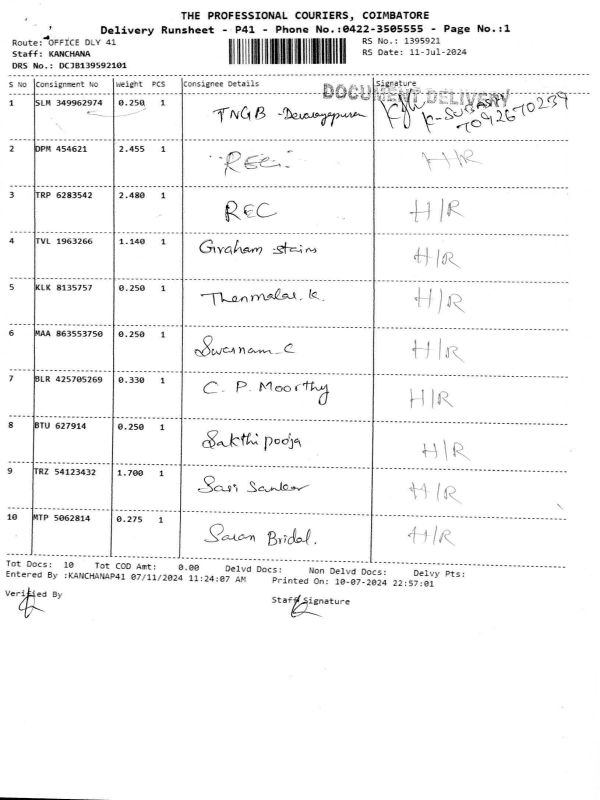 THE PROFESSIONAL COURIERS, COIMBATORE
Delivery Runsheet - P41 - Phone No.:0422-3505555 - Page No.:1
Route: OFFICE DLY 41 RS No.: 1395921
Staff: KANCHANA RS Date: 11-Jul-2024
DRS No.: DCJB139592101
S No Consignment No Weight PCS Consignee Details Signature
DOCUMENT DELIVERY
1 SLM 349962974 0.250 1 TNGB - Devarayapuram
7092670239
2 DPM 454621 2.455 1 "REC." H/R
3 TRP 6283542 2.480 1 REC H/R
4 TVL 1963266 1.140 1 Graham stains H/R
5 KLK 8135757 0.250 1 Thenmalar. K. H/R
6 MAA 863553750 0.250 1 Swarnam C H/R
7 BLR 425705269 0.330 1 C. P. Moorthy H/R
8 BTU 627914 0.250 1 Sakthi pooja H/R
9 TRZ 54123432 1.700 1 Sasi Sankar H/R
10 MTP 5062814 0.275 1 Saran Bridal. H/R
Tot Docs: 10 Tot COD Amt: 0.00 Delvd Docs: Non Delvd Docs: Delvy Pts:
Entered By :KANCHANAP41 07/11/2024 11:24:07 AM Printed On: 10-07-2024 22:57:01
Verified By Staff Signature